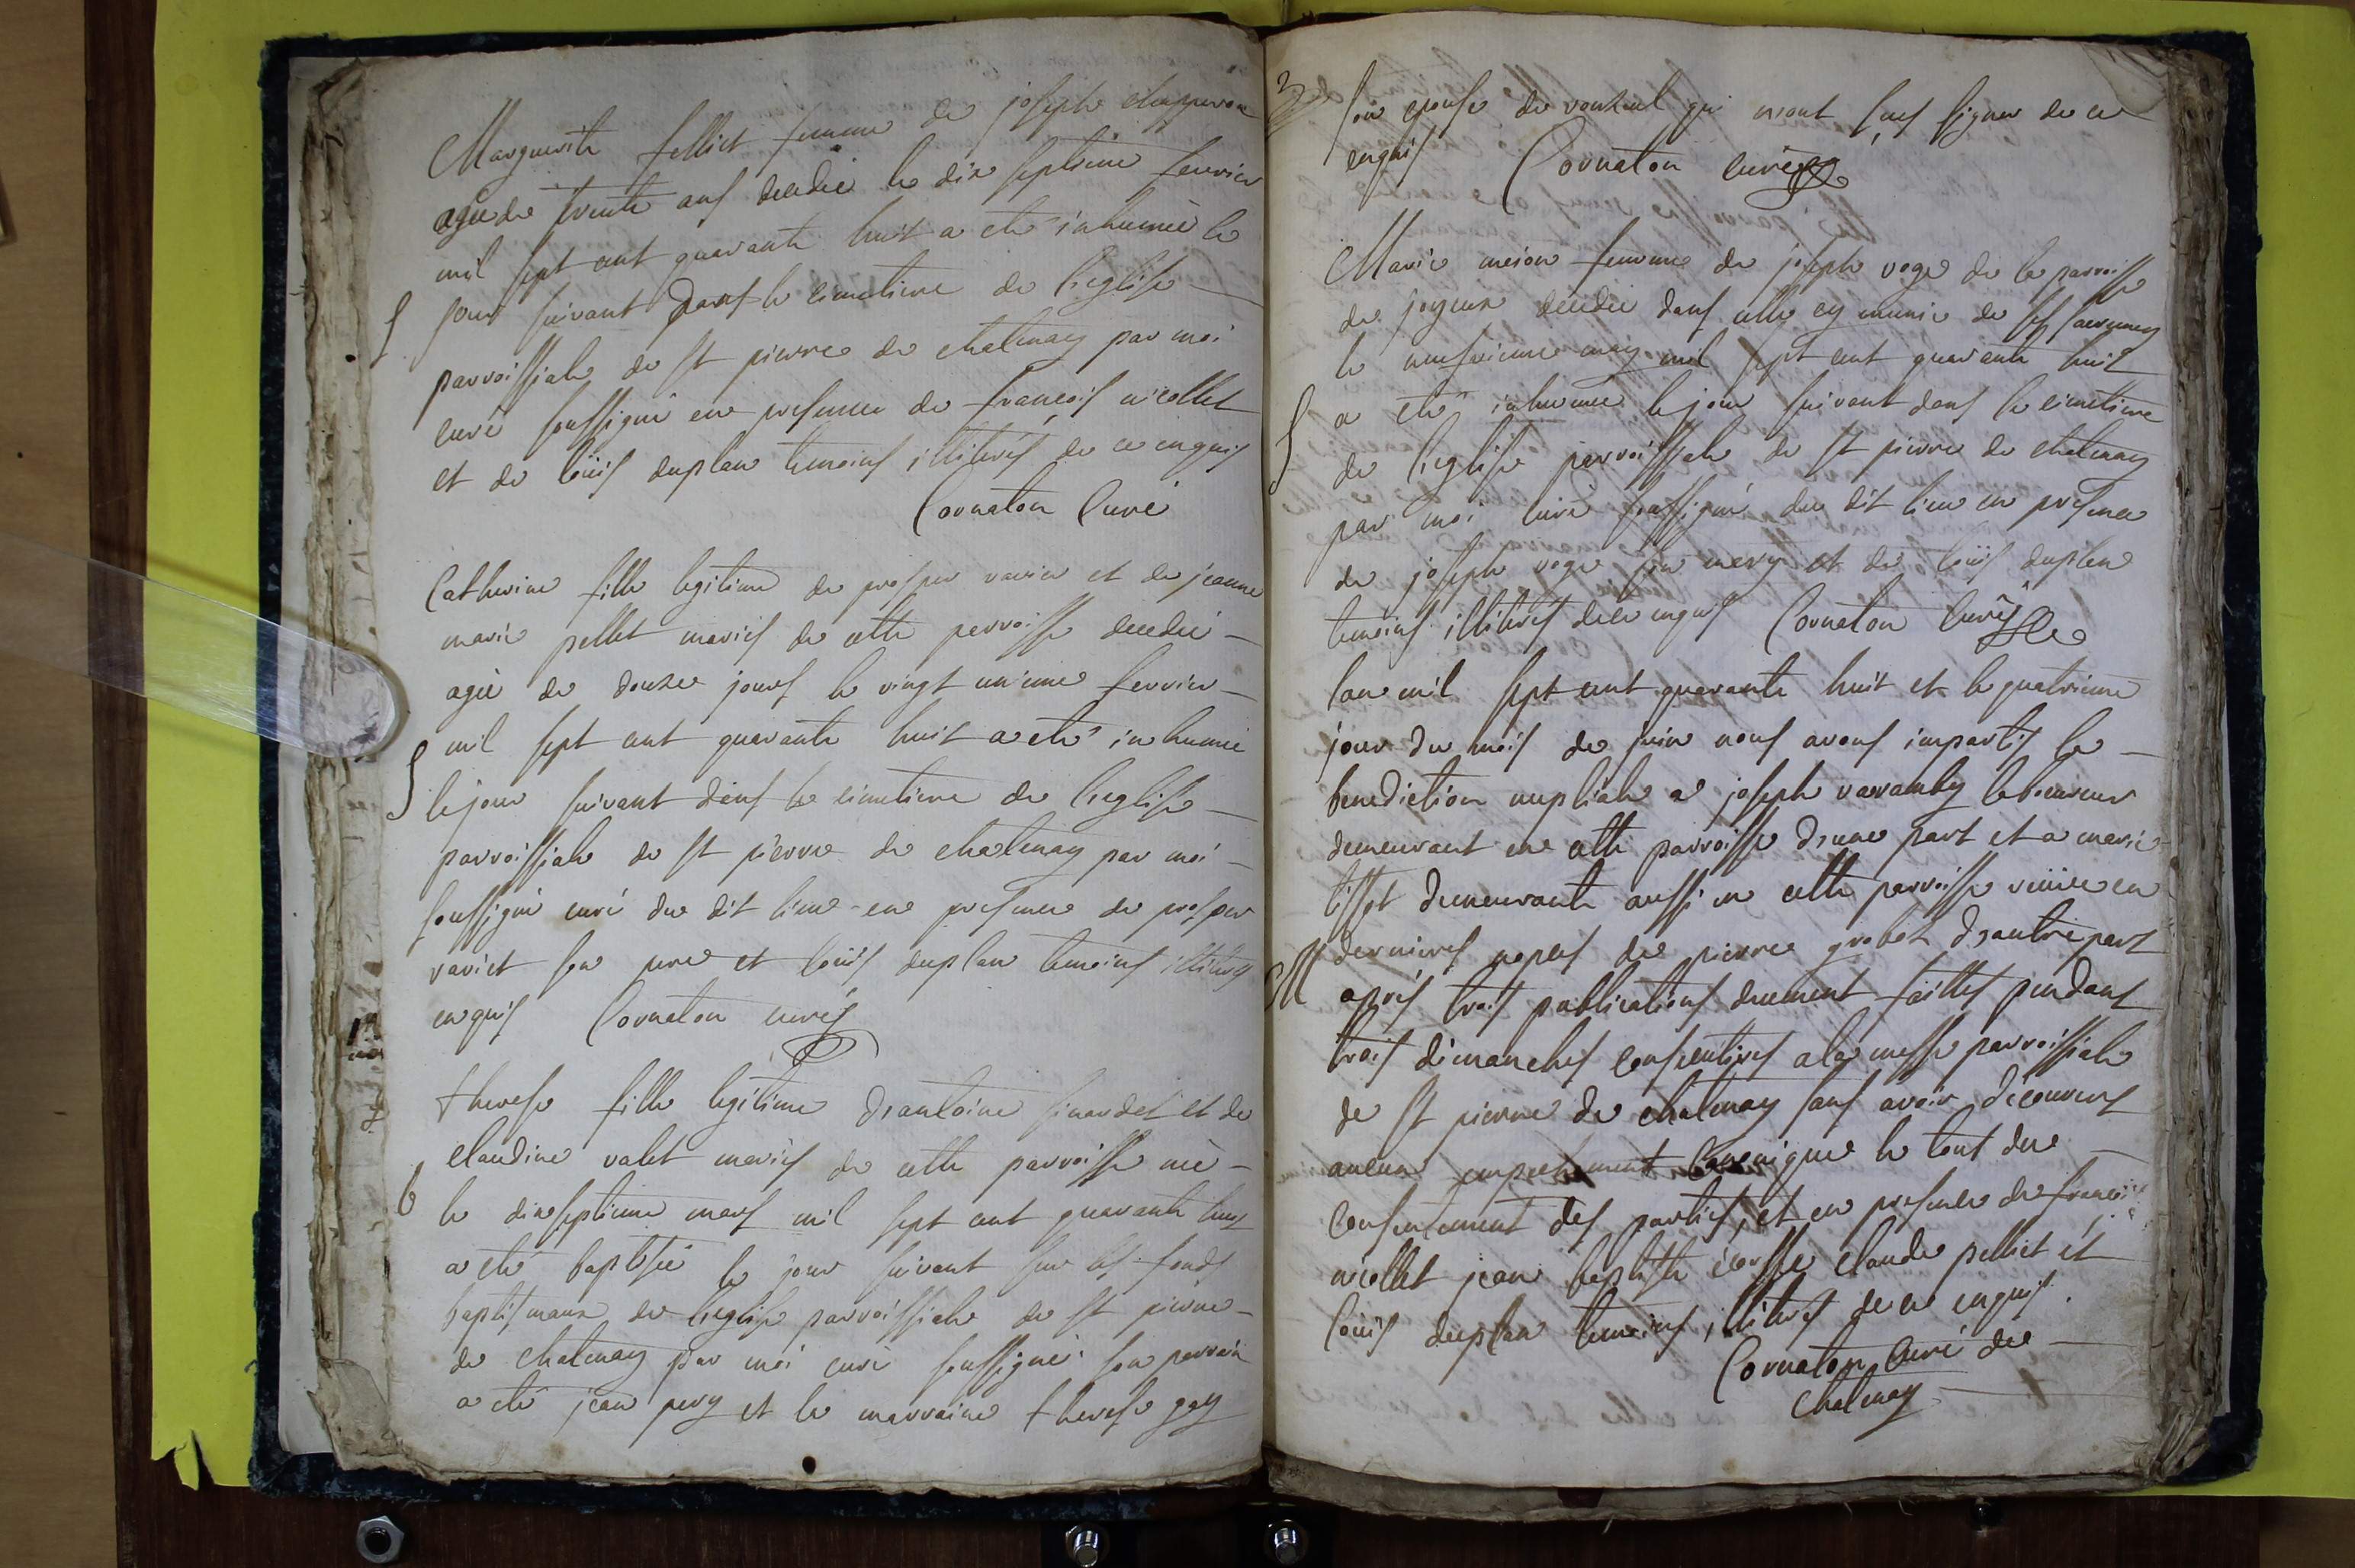 Marguerite felliet femme de joseph chapperon
agée de trente ans decedée le dix septieme fevrier
mil sept cent quarante huit a eté inhumée le
S jour suivant dans le cimetiere de l'eglise
parroissiale de st pierre de chatenay par moi
curé soussigné en presence de francois nicollet
et de loüis duplan temoins illiterés de ce enquis
Cornaton Curé
Catherine fille legitime de prosper variet et de jeanne
marie pellet mariés de cette parroisse decedée
agée de douze jours le vingt unieme fevrier
mil sept cent quarante huit a eté inhumée
S le jour suivant dans le cimetiere de l'eglise
parroissiale de st pierre de chatenay par moi
soussigné curé du dit lieu en presence de prosper
variet son pere et loüis duplan temoins illiterés
enquis Cornaton curé
therese fille legitime d'antoine sinardet et de
claudine valet mariés de cette parroisse née
b le dixseptieme mars mil sept cent quarante huit
a eté baptisée le jour suivant sur les fonds
baptismaux de l'eglise parroissiale de st pierre
de chatenay par moi curé soussigné son parrain
a eté jean pery et la marraine therese gay
3
son epouse de qui n'ont sus signer de ce
enquis Cornaton curé
Marie femme de joseph voge de la parroisse
de joyeux decedée dans celle cy munie de ses sacremens
le neufvieme may mil sept cent quarante huit
S a eté inhumée le jour suivant dans le cimetiere
de l'eglise parroissiale de st pierre de chatenay
par moi curé soussigné du dit lieu en presence
de joseph voge son mery et de loüis duplan
temoins illiterés de ce enquis Cornaton Curé
l'an mil sept cent quarante huit et le quatrieme
jour du mois de juin nous avons impartis la
benediction nuptiale a joseph varramby laboureur
demeurant en cette parroisse d'une part et a marie
tissot demeurante aussi en cette parroisse veüive en
dernieres nopces de pierre grobet d'autre part
M aprés trois publications duement faittes pendant
trois dimanches consecutives a la messe parroissiale
de st pierre de chatenay sans avoir découvert
aucun empechement Canonique le tout du
consentement des parties, et en presence de francois
nicollet jean baptiste claude pelliet et
loüis duplan temoins illiterés de ce enquis.
Cornaton Curé de
Chatenay